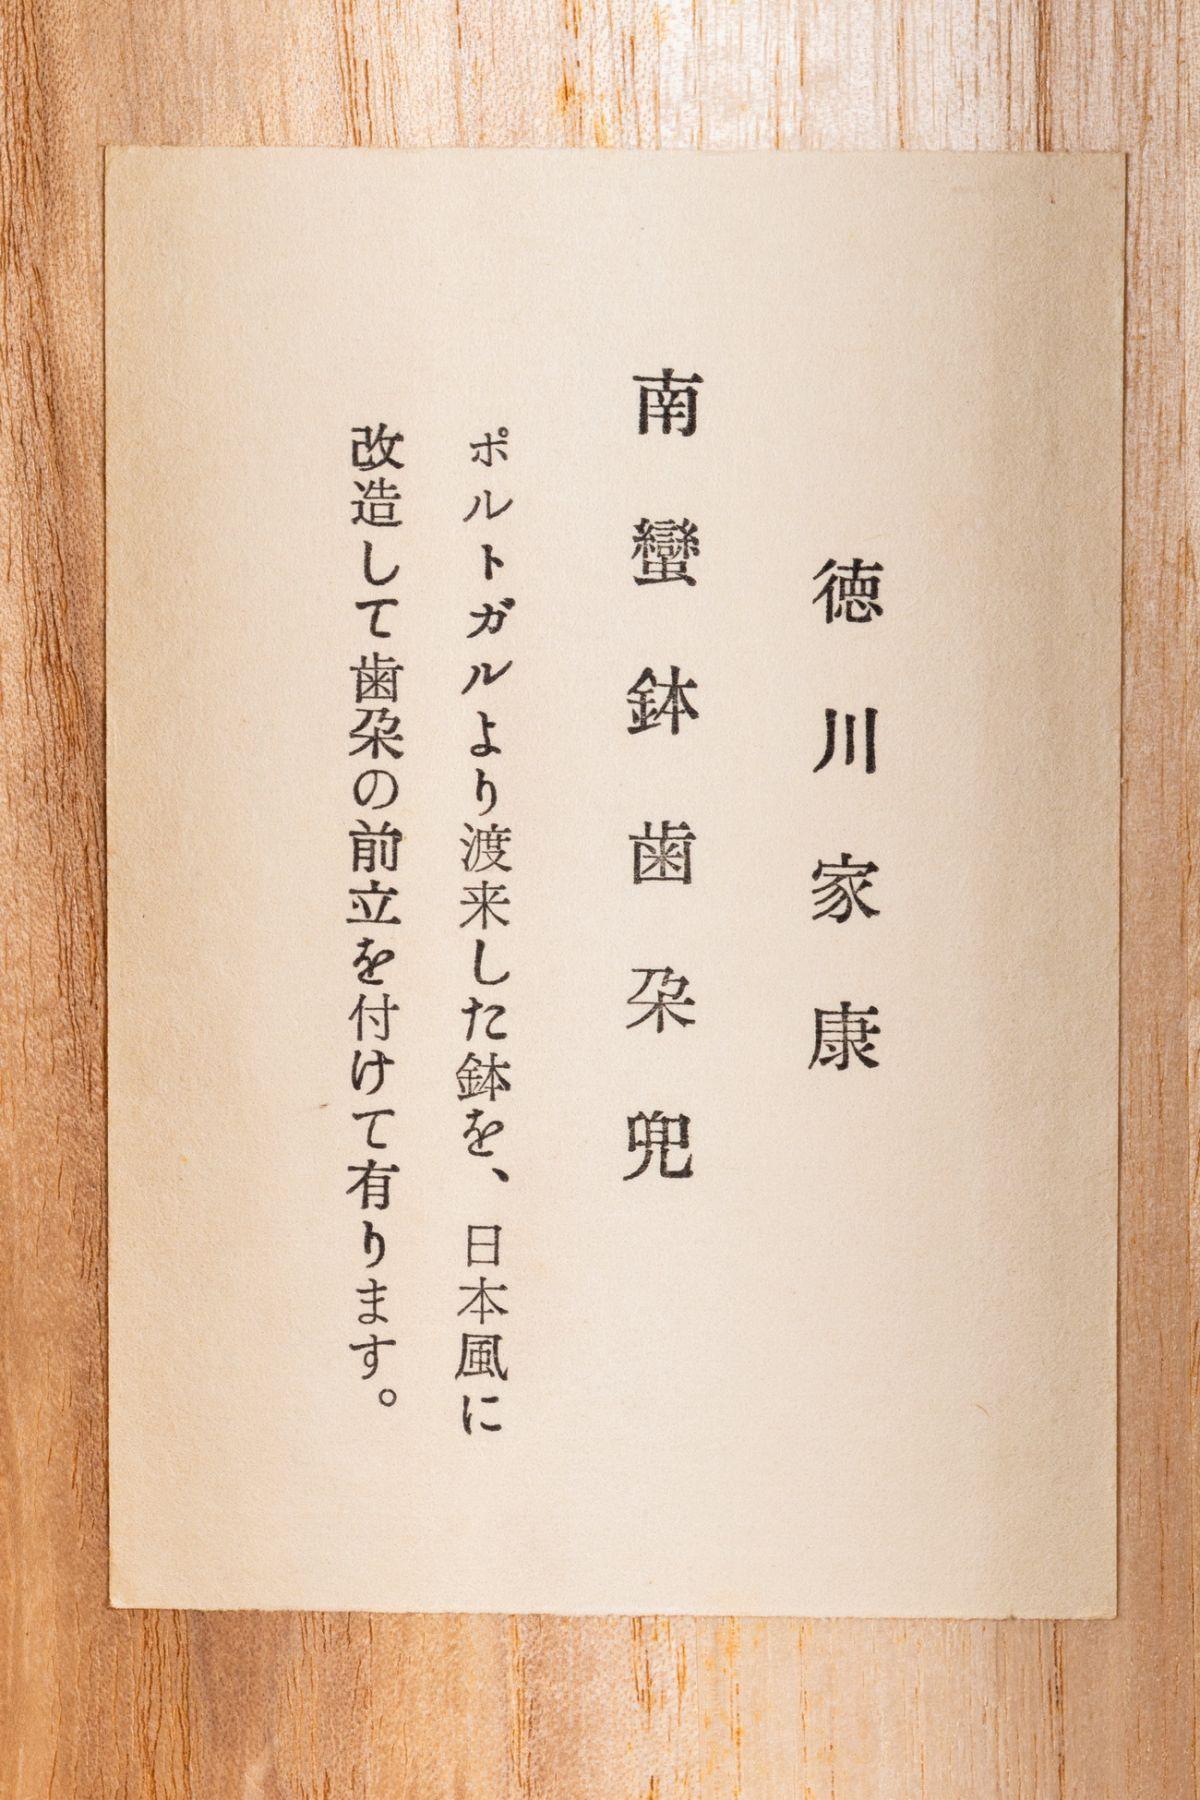 徳川家康
南蠻鉢歯朶兜
ポルトガルより渡来した鉢を、日本風に
改造して歯朶の前立を付けて有ります。